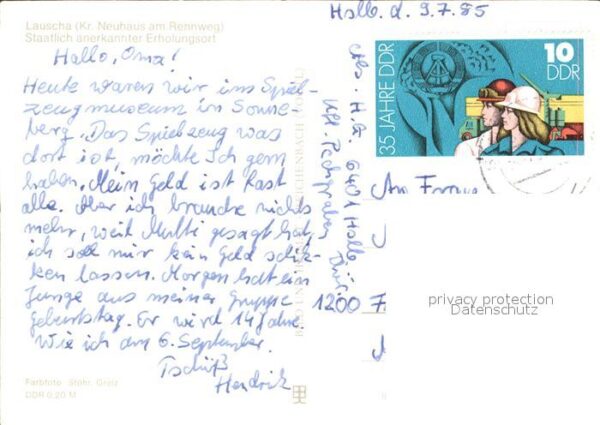 Lauscha (Kr. Neuhaus am Rennweg)
Staatlich anerkannter Erholungsort
Hallo, Oma!
Heute waren wir im Spiel-
zeugmuseum in Sonne-
berg. Das Spielzeug was
dort ist, möchte Ich gern
haben. Mein Geld ist fast
alle. Aber ich brauche nichts
mehr, weil Mutti gesagt hat,
ich soll mir kein Geld schik-
ken lassen. Morgen hat ein
Junge aus meiner Gruppe
Geburtstag. Er wird 14 Jahre.
Wie ich am 6. September.
Tschüß
Hendrik
Farbfoto: Stöhr, Greiz
DDR 0,20 M
d. 9.7.85
Abs. H. G. 6401
35 JAHRE DDR
10
DDR
An
1200 F
privacy protection
Datenschutz